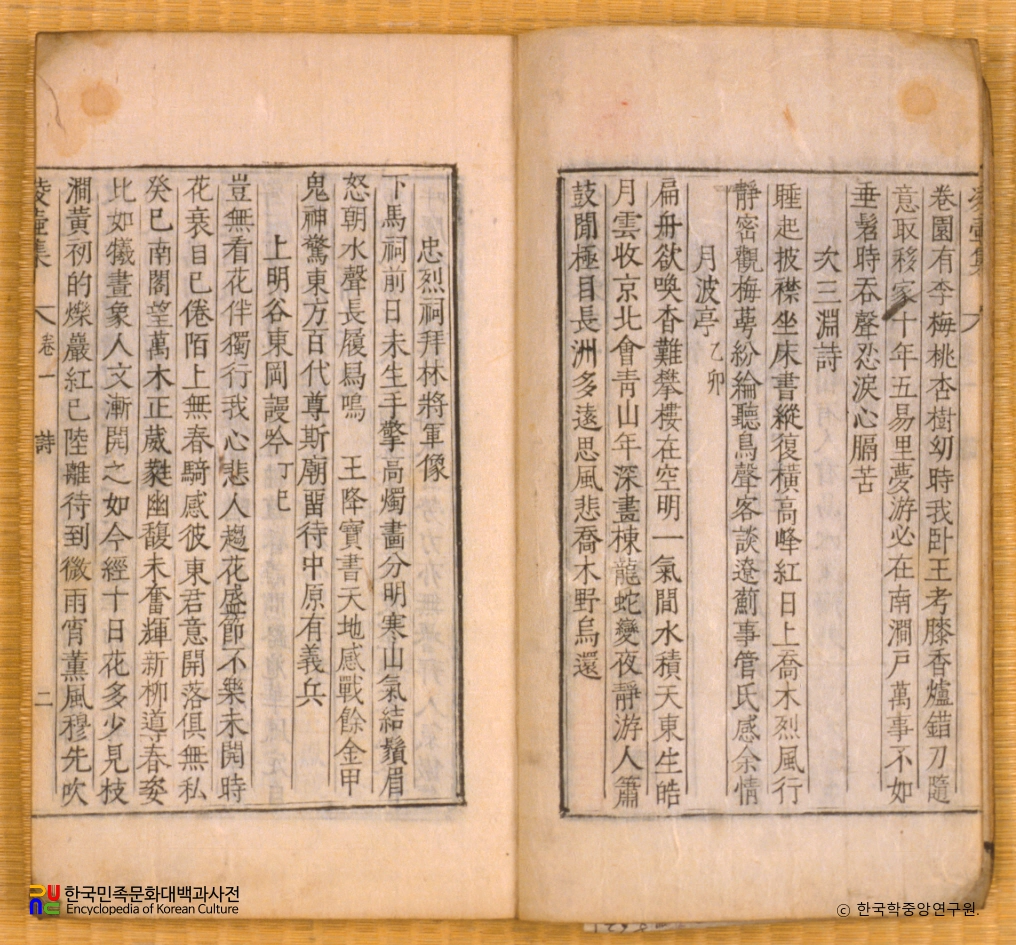 卷園有李梅桃杏樹幼時我卧王考膝香爐錯刀隨
意取移家十年五易里夢游必在南澗戶萬事不如
垂髫時吞聲忍淚心膈苦
次三淵詩
睡起披襟坐床書縱復橫高峰紅日上喬木烈風行
靜密觀梅萼紛綸聽鳥聲客談遼薊事管氏感余情
月波亭 乙卯
扁舟欲喚杳難攀樓在空明一氣間水積天東生皓
月雲收京北會靑山年深畫棟龍蛇變夜靜游人簫
鼓閒極目長洲多遠思風悲喬木野烏還
忠烈祠拜林將軍像
下馬祠前日未生手擎高燭畫分明寒山氣結鬚眉
怒朝水聲長履舃鳴 王降寶書天地感戰餘金甲
鬼神驚東方百代尊斯廟留待中原有義兵
上明谷東岡謾吟 丁巳
豈無看花伴獨行我心悲人趨花盛節不樂未開時
花衰目已倦陌上無春騎感彼東君意開落俱無私
癸巳南閣望萬木正葳蕤幽馥未奮輝新柳導春姿
比如犧畫象人文漸開之如今經十日花多少見枝
澗黃礽的爍巖紅已陸離待到微雨宵薰風穆先吹
卷一 詩
二
한국민족문화대백과사전
Encyclopedia of Korean Culture
© 한국학중앙연구원.